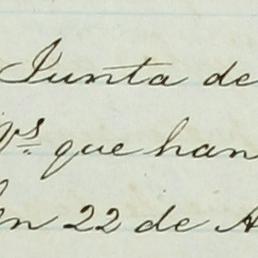 Junta de
que han
En 22 de A